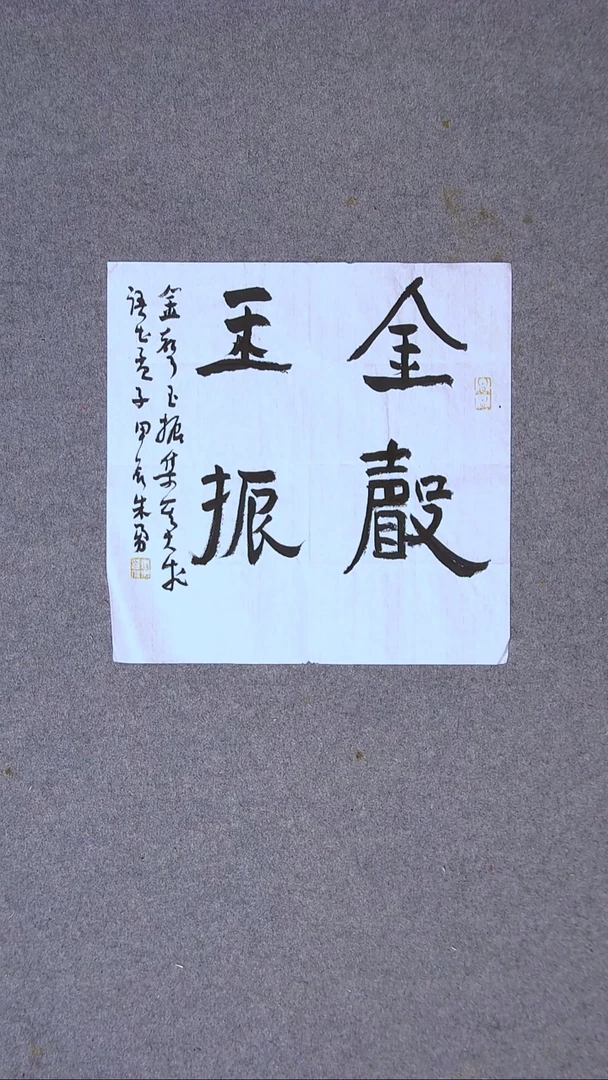 金聲
玉振
金聲玉振集其大成
語出孟子甲辰朱勇